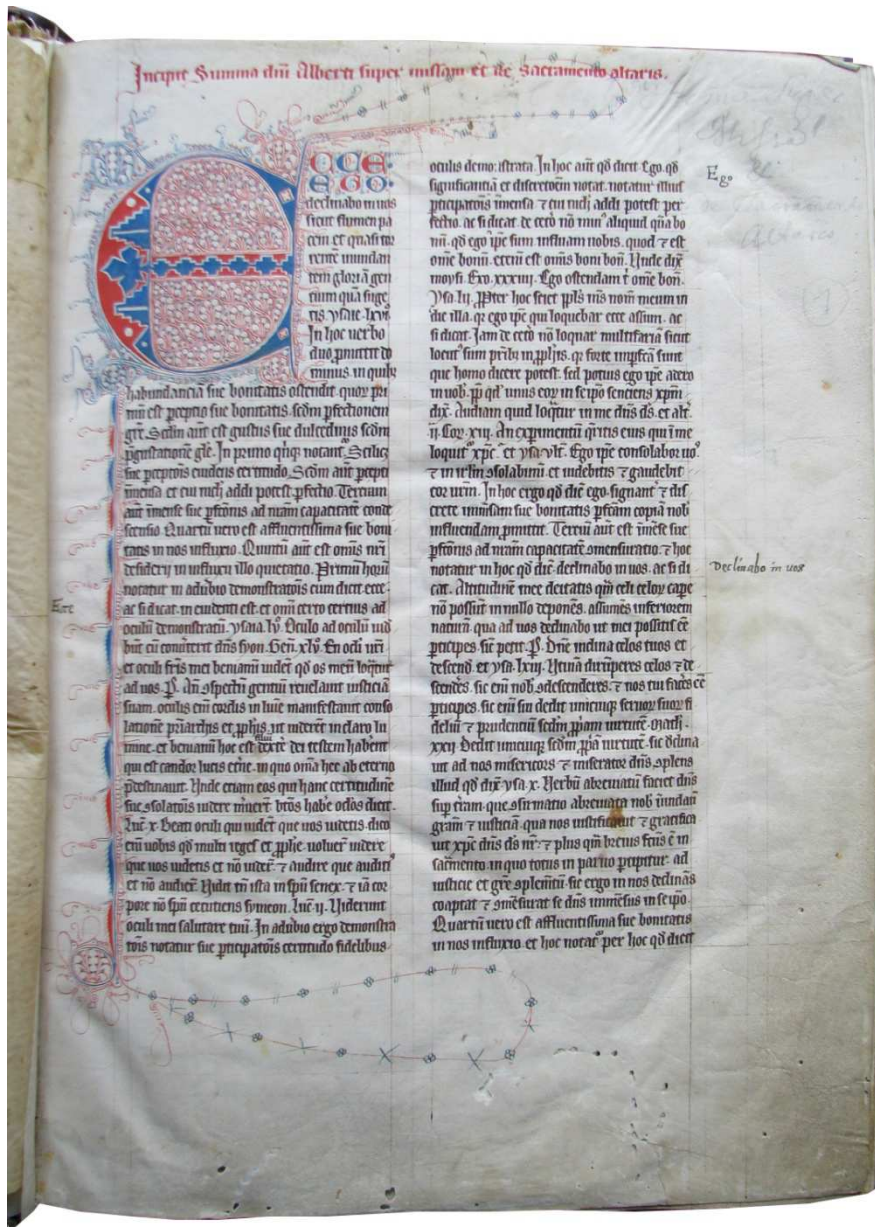 Incipit Summa dni Alberti super missam et de Sacramento altaris.
ECCE
EGO
declinabo in uos
sicut flumen pa
cem et quasi tor
rente inundan
tem gloriã gen
cium quã suge
tis. ysaie. lxvi.
In hoc uerbo
duo ꝓmittit do
minus in quib⁹
habundanciã sue bonitatis ostendit. quoꝝ pri
mũ est ꝑceptio sue bonitatis. scdm ꝑfectionem
gre. Scdm aut est gustus sue dulcedinis scdm
p̃gustationẽ gle. In primo
sue ꝑceptõis euidens certitudo. Scdm aut ꝑcepti
ĩmensa et cui nichil addi potest ꝑfectio. Tercium
aut ĩmense sue ꝑfctõnis ad nr̃am capacitatẽ conde
scensio. Quartũ uero est affluentissima sue boni
tatis in nos influxio. Quintũ aut est omĩs nr̃i
desiderij in influxu illo quietatio. Primũ horũ
notatur in aduerbio demonstratõis cum dicit ecce
ac si dicat. in euidenti est. et omi certo certius ad
oculũ demonstratũ. ysaia. lv. Oculo ad oculũ uid
bũt cũ conuerterit dñs syon. Gen. xlv. En oculi uri
et oculi fr̃is mei beniamin uidet qd os meũ loqtur
ad uos. P̃. Añ ɔspectũ gentiũ reuelauit iusticiã
suam. oculis eni cordis in luce manifestauit conso
lationẽ pr̃iarchis et ꝓphis. ut uiderẽt in claro lu
mine. et beniamin hoc est dext̃e dei
qui est candor lucis et̃ne. in quo oma hec ab eterno
p̃destinauit. Unde etiam eos qui hanc certitudinẽ
sue ɔsolatõis uidere
Luc̃. x. Beati oculi qui uidẽt que uos uidetis. dico
eni uobis qd multi reges et ꝓphe. uoluer̃t uidere
que uos uidetis et nõ uider̃t. ⁊ audire que auditis
et nõ audier̃t. Uidit tñ ista in spũ senex. ⁊ iã cor
pore nõ spũ cecutiens symeon. Luc̃. ij. Uiderunt
oculi mei salutare tuũ. In aduerbio ergo demonstra
tõis notatur sue ꝑticipatõis certitudo fidelibus
oculis demõstrata. In hoc aut qd dicit. Ego. qd
significantiã et discretoẽm notat. notatur illius
ꝑticipatõis ĩmensa ⁊ cui nichil addi potest per
fectio. ac si dicat. de cet̃o nõ min⁹ aliquid quã bo
nũ. qd ego ip̃e sum influam uobis. quod ⁊ est
om̃e bonũ. etenĩ est omĩs boni bonũ. Unde dix̃
moysi. Exo. xxxiij. Ego ostendam t̃ om̃e bonũ.
ysa. lij. Ꝓpter hoc sciet ppl̃s me⁹ nom̃ meum in
die illa. qr ego ip̃e qui loquebar ecce assum. ac
si dicat. Jam de cet̃o nõ loquar multifariã sicut
locut⁹ sum pr̃ib⁹ in ꝓphis. qr forte imꝑfcã sunt
que homo dicere potest. sed potius ego ip̃e adero
in uob̃.
dix̃. Audiam quid loqtur in me dñs ds.
ij. Cor. xiij. An experimentũ qr̃itis eius qui ĩ me
loquit⁹ xpc̃. Ego ip̃e consolabor uo⁹
⁊ in irl̃m ɔsolabimĩ. et uidebitis ⁊ gaudebit
cor ur̃m. In hoc ergo qd dic̃ ego. signant̃ ⁊ dis
crete immẽsam sue bonitatis ꝑfcam copiã nob̃
influendam ꝓmittit. Terciũ aut est ĩmẽse sue
ꝑfctõnis ad nr̃am capacitatẽ ɔmensuratio. ⁊ hoc
notatur in hoc qd dic̃. declinabo in uos. ac si di
cat. Altitudinẽ mee deitatis qm̃ celi celoꝝ cape
nõ possũt in nullo deponẽs. assumẽs inferiorem
naturã. qua ad uos declinabo ut mei possitis ẽe
ꝑticipes. sic petit. P̃. Dñe inclina celos tuos et
descend. et ysa. lxiiij. Utinã dirũperes celos ⁊ de
scendẽs. sic em nob̃ ɔdescenderes. ⁊ nos tui faces ẽe
ꝑticipes. sic em
deliũ ⁊ prudentiũ scdm ꝓpiam uirtutẽ.
xxv. Dedit unicuiq scdm ꝓpiã uirtutẽ. sic dclina
uit ad nos misericors ⁊ miserator dñs. ɔplens
illud qd dix̃ ysa. x. Uerbũ abreuiatũ faciet dñs
sup t̃ram. que ɔsumatio abreuiata nob̃ inundau
gram ⁊ iusticiã. qua nos iustificauit ⁊ gratifica
uit xpc̃ dñs ds nr̃. ⁊ plus qm̃
sac̃mento. in quo totus in paruo ꝑcipitur. ad
iusticie et gr̃e ɔplemẽtũ. sic ergo in nos declinãs
coaptat ⁊ ɔmẽsurat se dñs immẽsus in seip̃o.
Quartũ uero est affluentissima sue bonitatis
in nos influxio. et hoc notat⁹ per hoc qd dicit
Ecce
Ego
Declinabo in uos